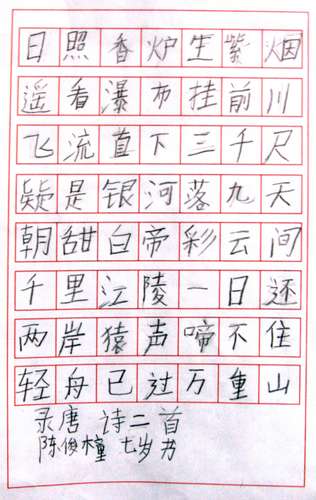 日照香炉生紫烟
遥看瀑布挂前川
飞流直下三千尺
疑是银河落九天
朝甜白帝彩云间
千里江陵一日还
两岸猿声啼不住
轻舟已过万重山
录唐诗二首
陈俊橦七岁书